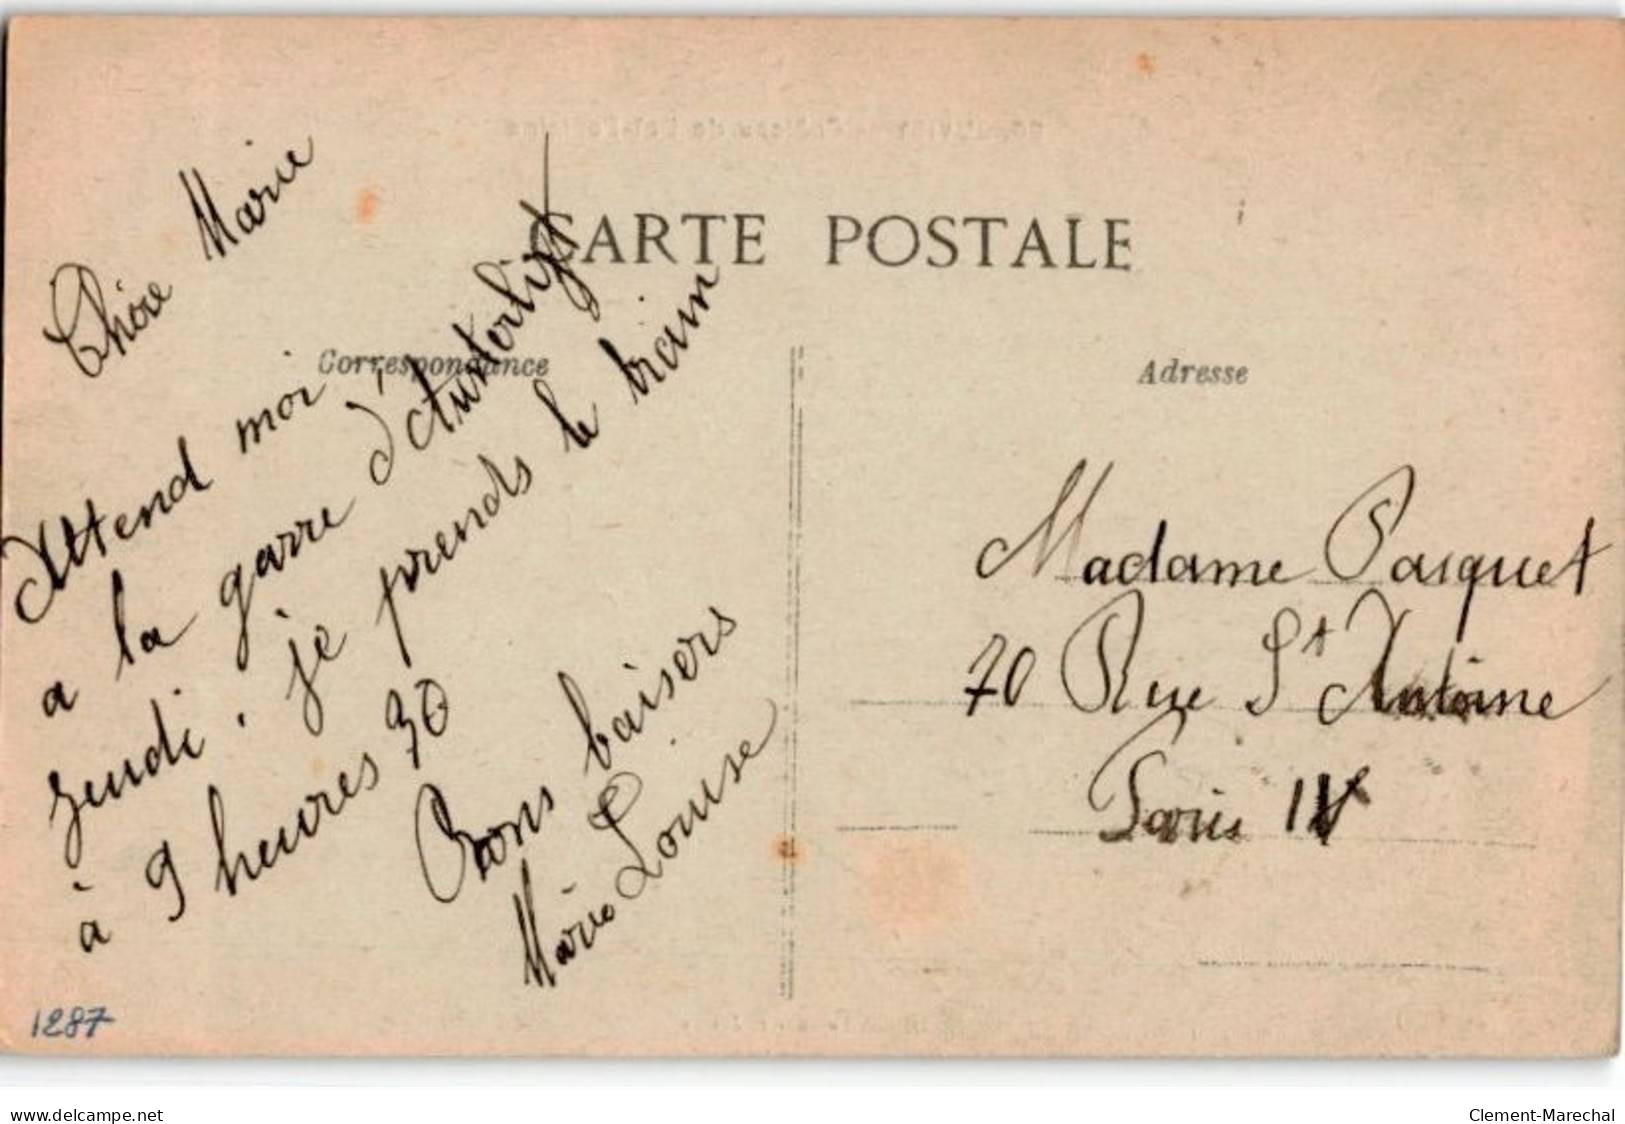 CARTE POSTALE
Correspondance
Adresse
Chère Marie
Attend moi
a la garre d'Austerlizt
jeudi. je prends le train
à 9 heures 30
Bons baisers
Marie Louise
Madame Pasquet
70 Rue St Antoine
Paris IV
1287
www.delcampe.net
Clement-Marechal